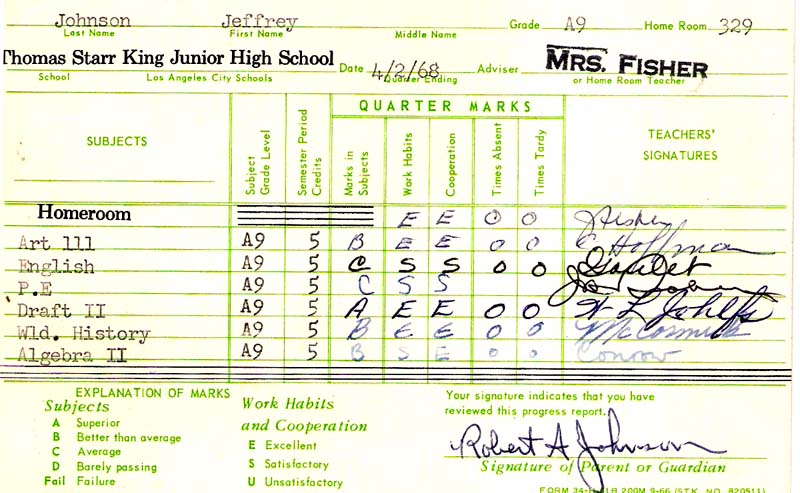 Johnson Jeffrey Grade A9 Home Room 329
Last Name First Name Middle Name
Thomas Starr King Junior High School Date 4/2/68 Adviser MRS. FISHER
School Los Angeles City Schools Quarter Ending or Home Room Teacher
QUARTER MARKS
SUBJECTS Subject Grade Level Semester Period Credits Marks in Subjects Work Habits Cooperation Times Absent Times Tardy TEACHERS' SIGNATURES
Homeroom E E 0 0 J Fisher
Art lll A9 5 B E E 0 0 C Hoffman
English A9 5 C S S 0 0
P.E A9 5 C S S
Draft II A9 5 A E E 0 0
Wld. History A9 5 B E E 0 0 McCormick
Algebra II A9 5 B S E 0 0 Conrow
EXPLANATION OF MARKS
Subjects
A Superior
B Better than average
C Average
D Barely passing
Fail Failure
Work Habits
and Cooperation
E Excellent
S Satisfactory
U Unsatisfactory
Your signature indicates that you have
reviewed this progress report.
Robert A Johnson
Signature of Parent or Guardian
200M 9-66 (STK. NO. 820511)